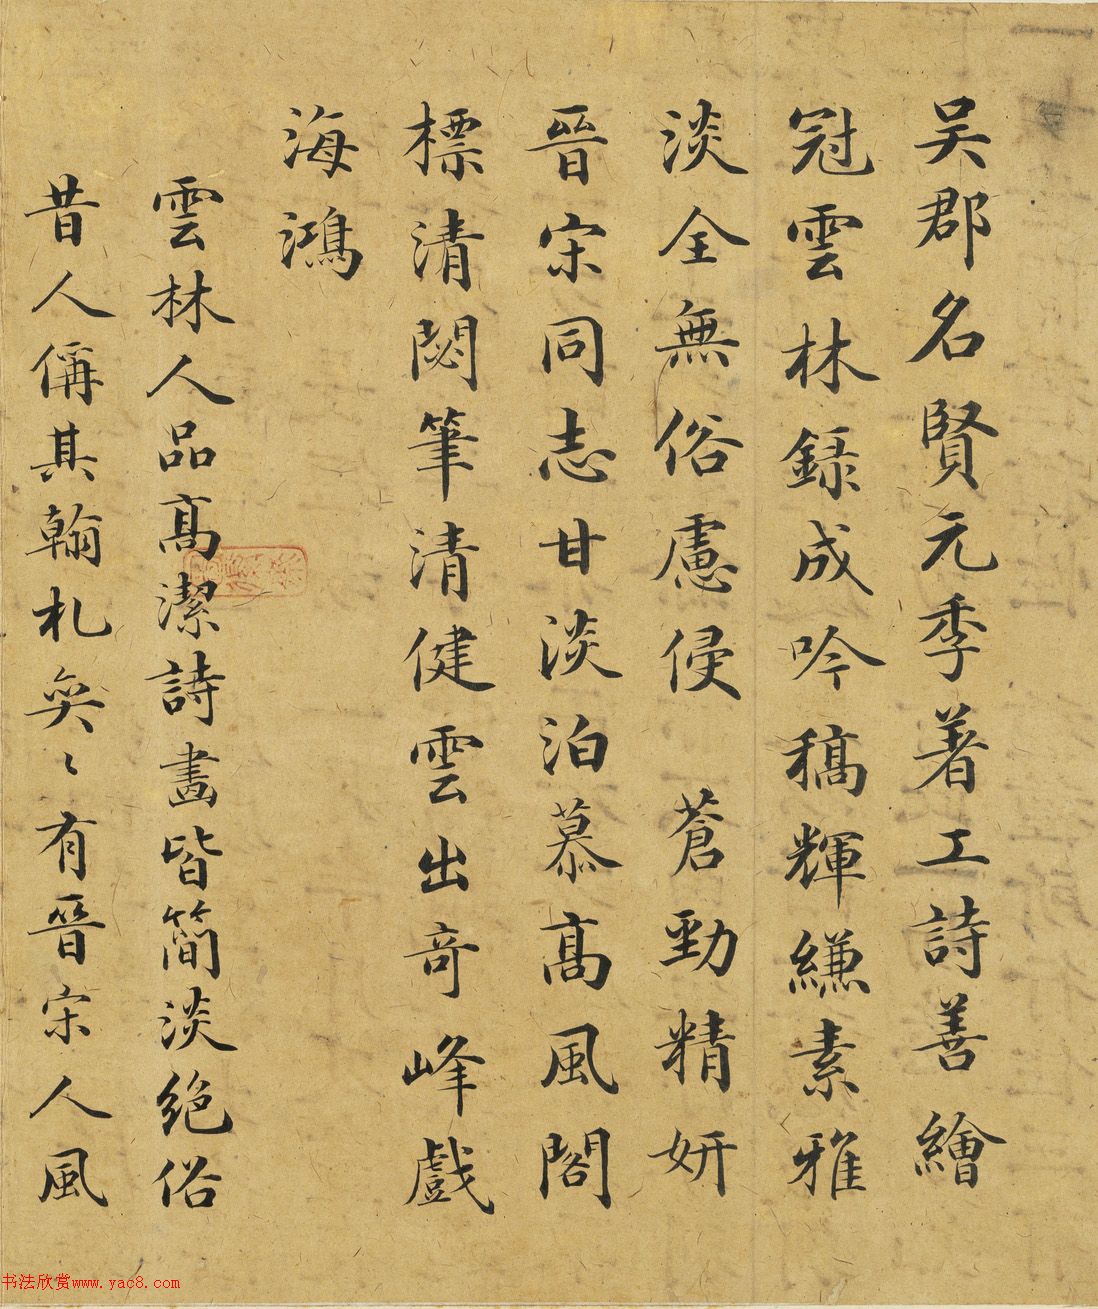 吴郡名賢元季著工詩善繪
冠雲林録成吟稿輝縑素雅
淡全無俗慮侵　蒼勁精妍
晉宋同志甘淡泊慕高風閣
標清閟筆清健雲出奇峰戲
海鴻
雲林人品高潔詩畫皆簡淡絕俗
昔人偁其翰札奕〻有晉宋人風
书法欣赏www.yac8.com